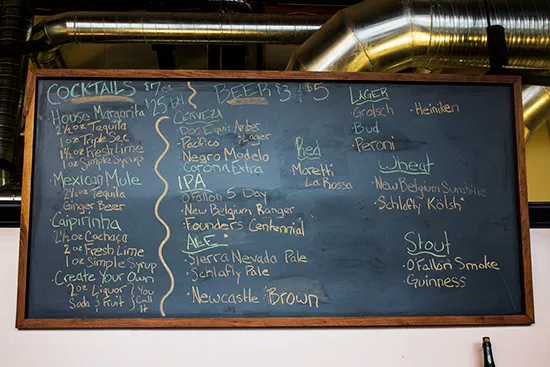 COCKTAILS $7.00
$25 btl
House Margarita
2 1/2 oz Tequila
1 oz Triple Sec
1 1/2 oz Fresh Lime
1 oz Simple Syrup
Mexican Mule
2 1/2 oz Tequila
Ginger Beer
Caipirinha
2 1/2 oz Cachaça
2 oz Fresh Lime
1 oz Simple Syrup
Create Your Own
2 oz Liquor
Soda & Fruit
You Call It
BEER $3 & $5
CERVEZA
Dos Equis Amber
Pacifico Lager
Negro Modelo
Corona Extra
IPA
O'Fallon 5 Day
New Belgium Ranger
Founders Centennial
ALE *
Sierra Nevada Pale
Schlafly Pale
Newcastle Brown
Red
Moretti
La Rossa
LAGER
Grolsch · Heiniken
Bud
Peroni
Wheat
New Belgium Sunshine
Schlafly Kölsh *
Stout
O'Fallon Smoke
Guinness